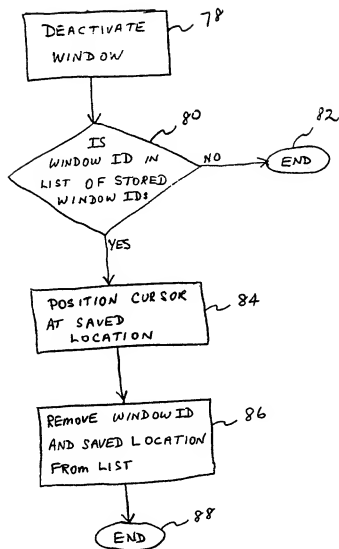 78
DEACTIVATE
WINDOW
80
IS
WINDOW ID IN
LIST OF STORED
WINDOW IDS
NO
82
END
YES
POSITION CURSOR
AT SAVED
LOCATION
84
REMOVE WINDOW ID
AND SAVED LOCATION
FROM LIST
86
END
88